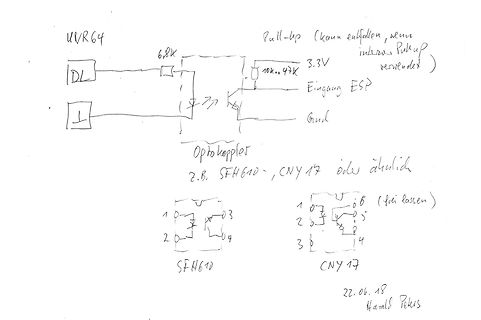 UVR64
Pull-Up (kann entfallen, wenn
interner Pull-up
verwendet)
6,8K
DL
3.3V
10K...47K
Eingang ESP
⊥
Gnd
Optokoppler
z.B. SFH610-, CNY17 oder ähnlich
1 3
2 4
SFH610
1 6 (frei lassen)
2 5
3 4
CNY17
22.06.18
Harald